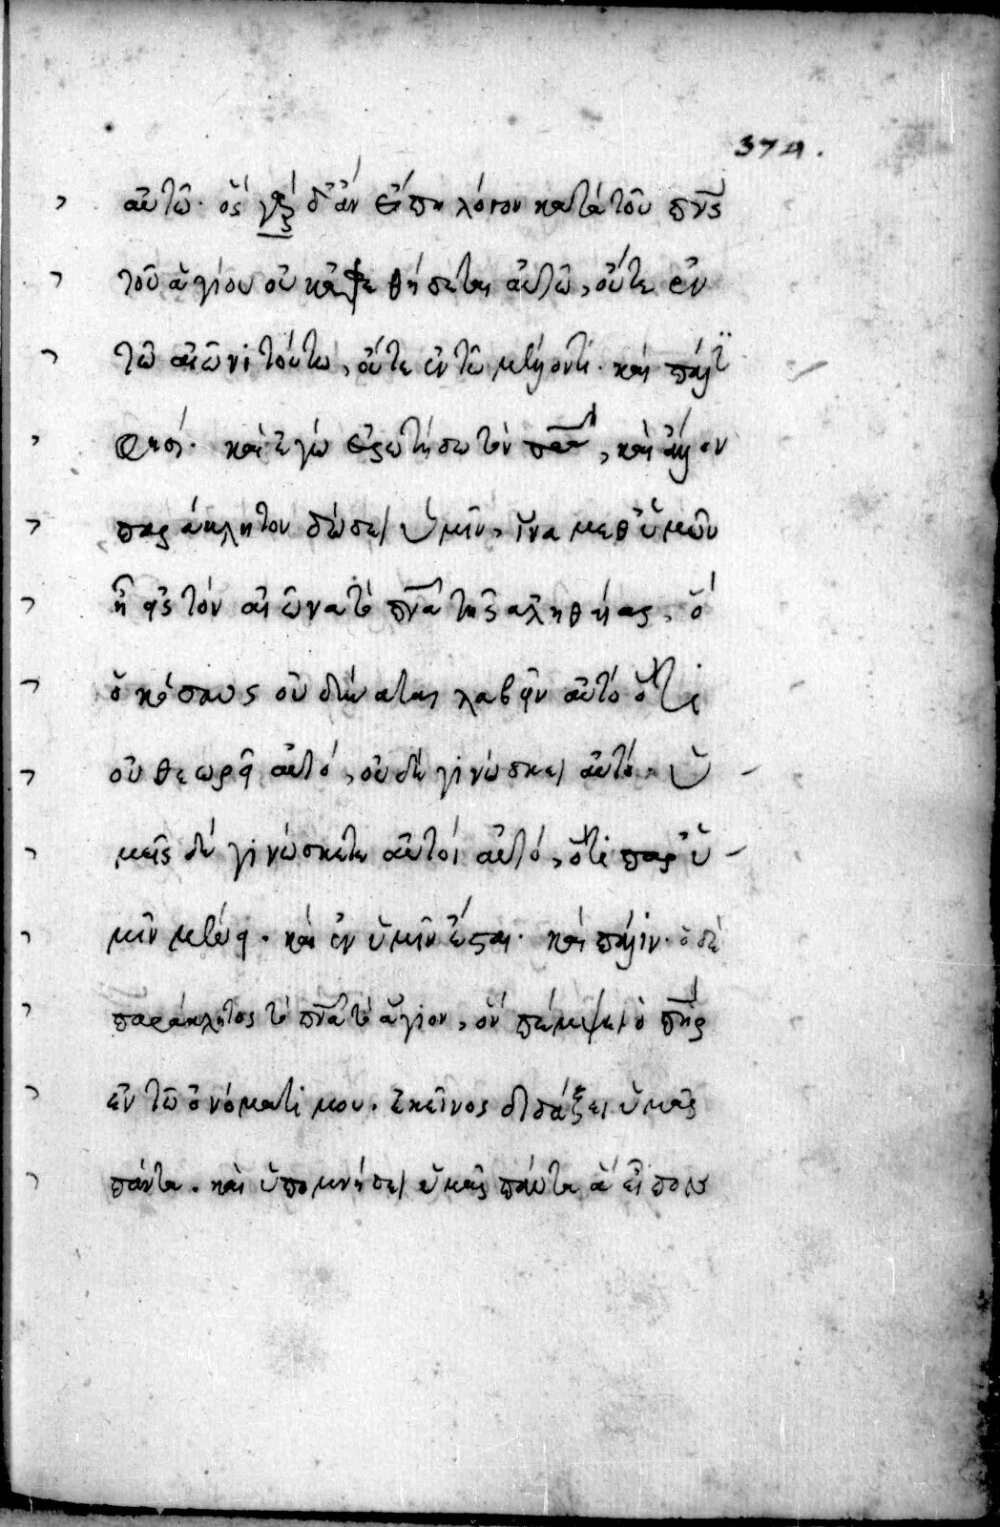 374.
αὐτῶ· ὅς γὰρ δ' ἂν εἴπη λόγον κατὰ τοῦ πνς
τοῦ ἁγίου οὐκ ἀφεθήσεται αὐτῶ, οὔτε ἐν
τῶ αἰῶνι τούτω, οὔτε ἐν τῶ μέλλοντι· καὶ πάλϊ
φησί· καὶ ἐγὼ ἐρωτήσω τὸν πρα, καὶ ἄλλον
παράκλητον δώσει ὑμῖν, ἵνα μεθ' ὑμῶν
ἦ εἰς τόν αἰῶνα τὸ πνα τῆς ἀληθείας, ὅ
ὁ κόσμος οὐ δύναται λαβεῖν αὐτό ὅτι
οὐ θεωρεῖ αὐτό, οὐδὲ γινώσκει αὐτό. ὑ
μεῖς δὲ γινώσκετε αὐτοί αὐτό, ὅτι παρ' ὑ
μῖν μένει. καὶ ἐν ὑμῖν ἔσται. καὶ πάλιν· ὁ δὲ
παράκλητος τὸ πνα τὸ ἅγιον, ὅν πέμψει ὁ πηρ
ἐν τῶ ὀνόματί μου. ἐκεῖνος διδάξει ὑμᾶς
πάντα. καὶ ὑπομνήσει ὑμᾶς πάντα ἅ εἶπον